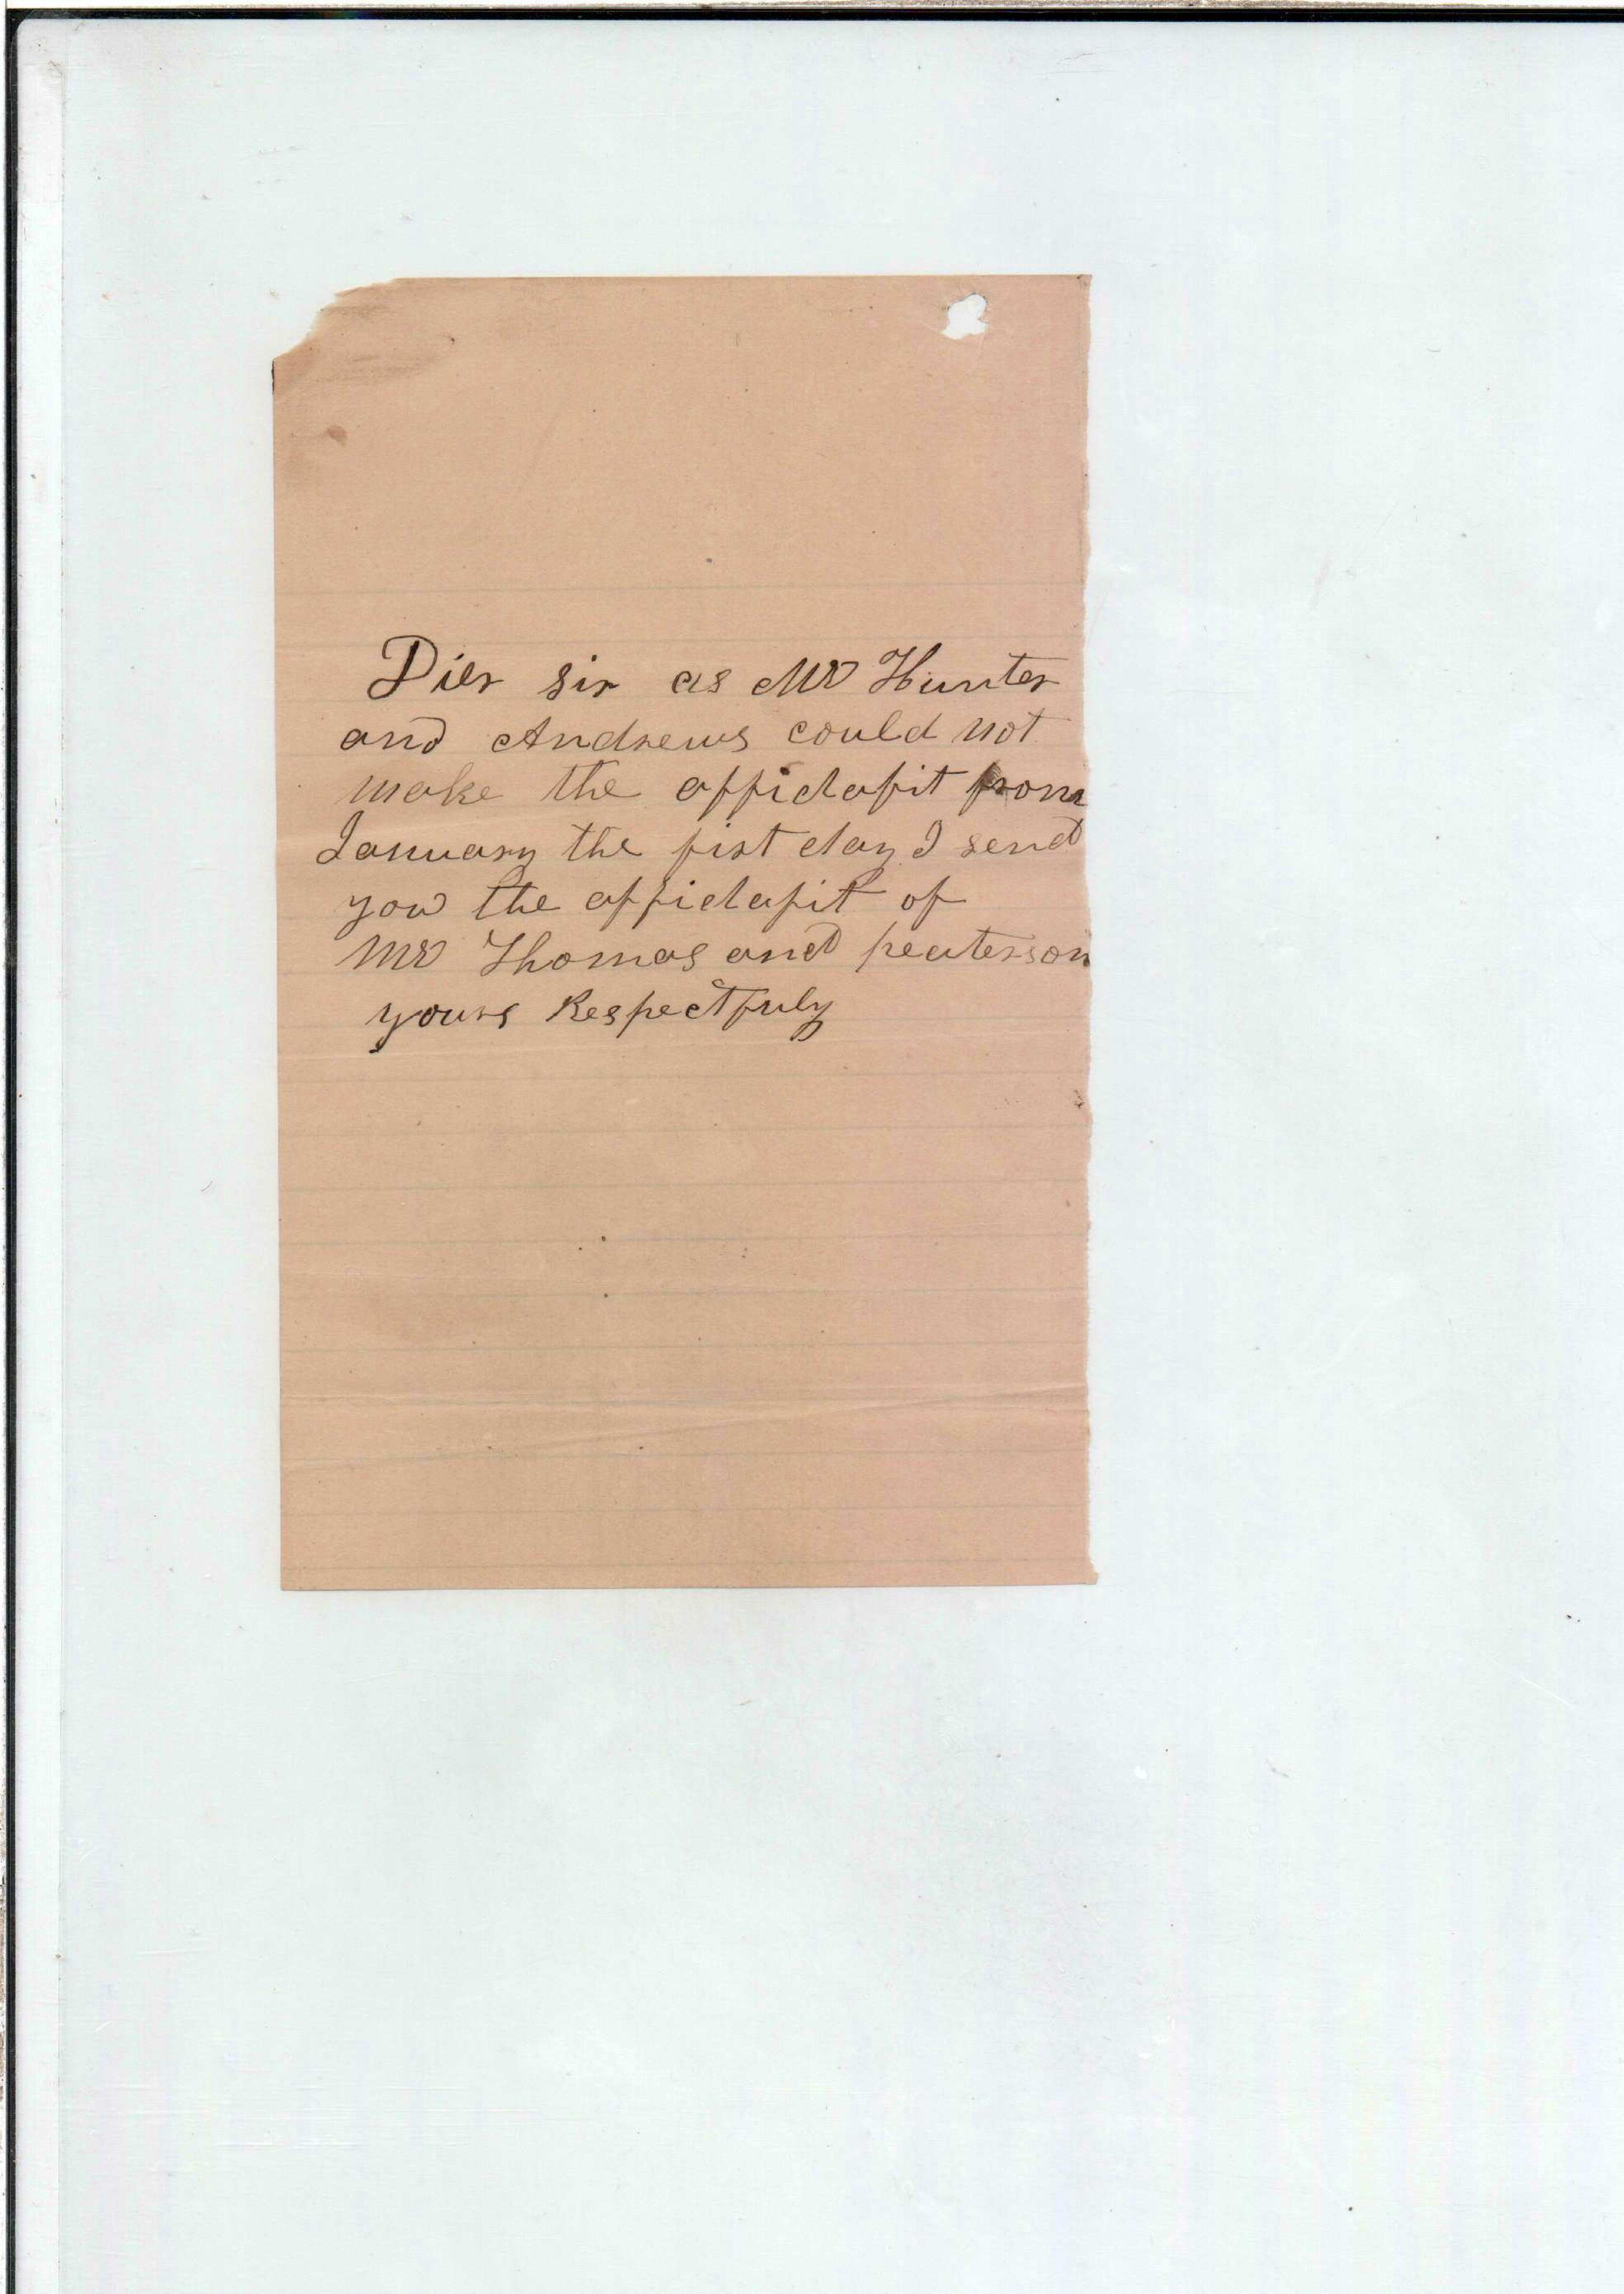 Dier sir as Mr Hunter
and Andrews could not
make the affidafit from
January the fist day I send
you the affidafit of
Mr Thomas and peaterson
yours Respectfuly